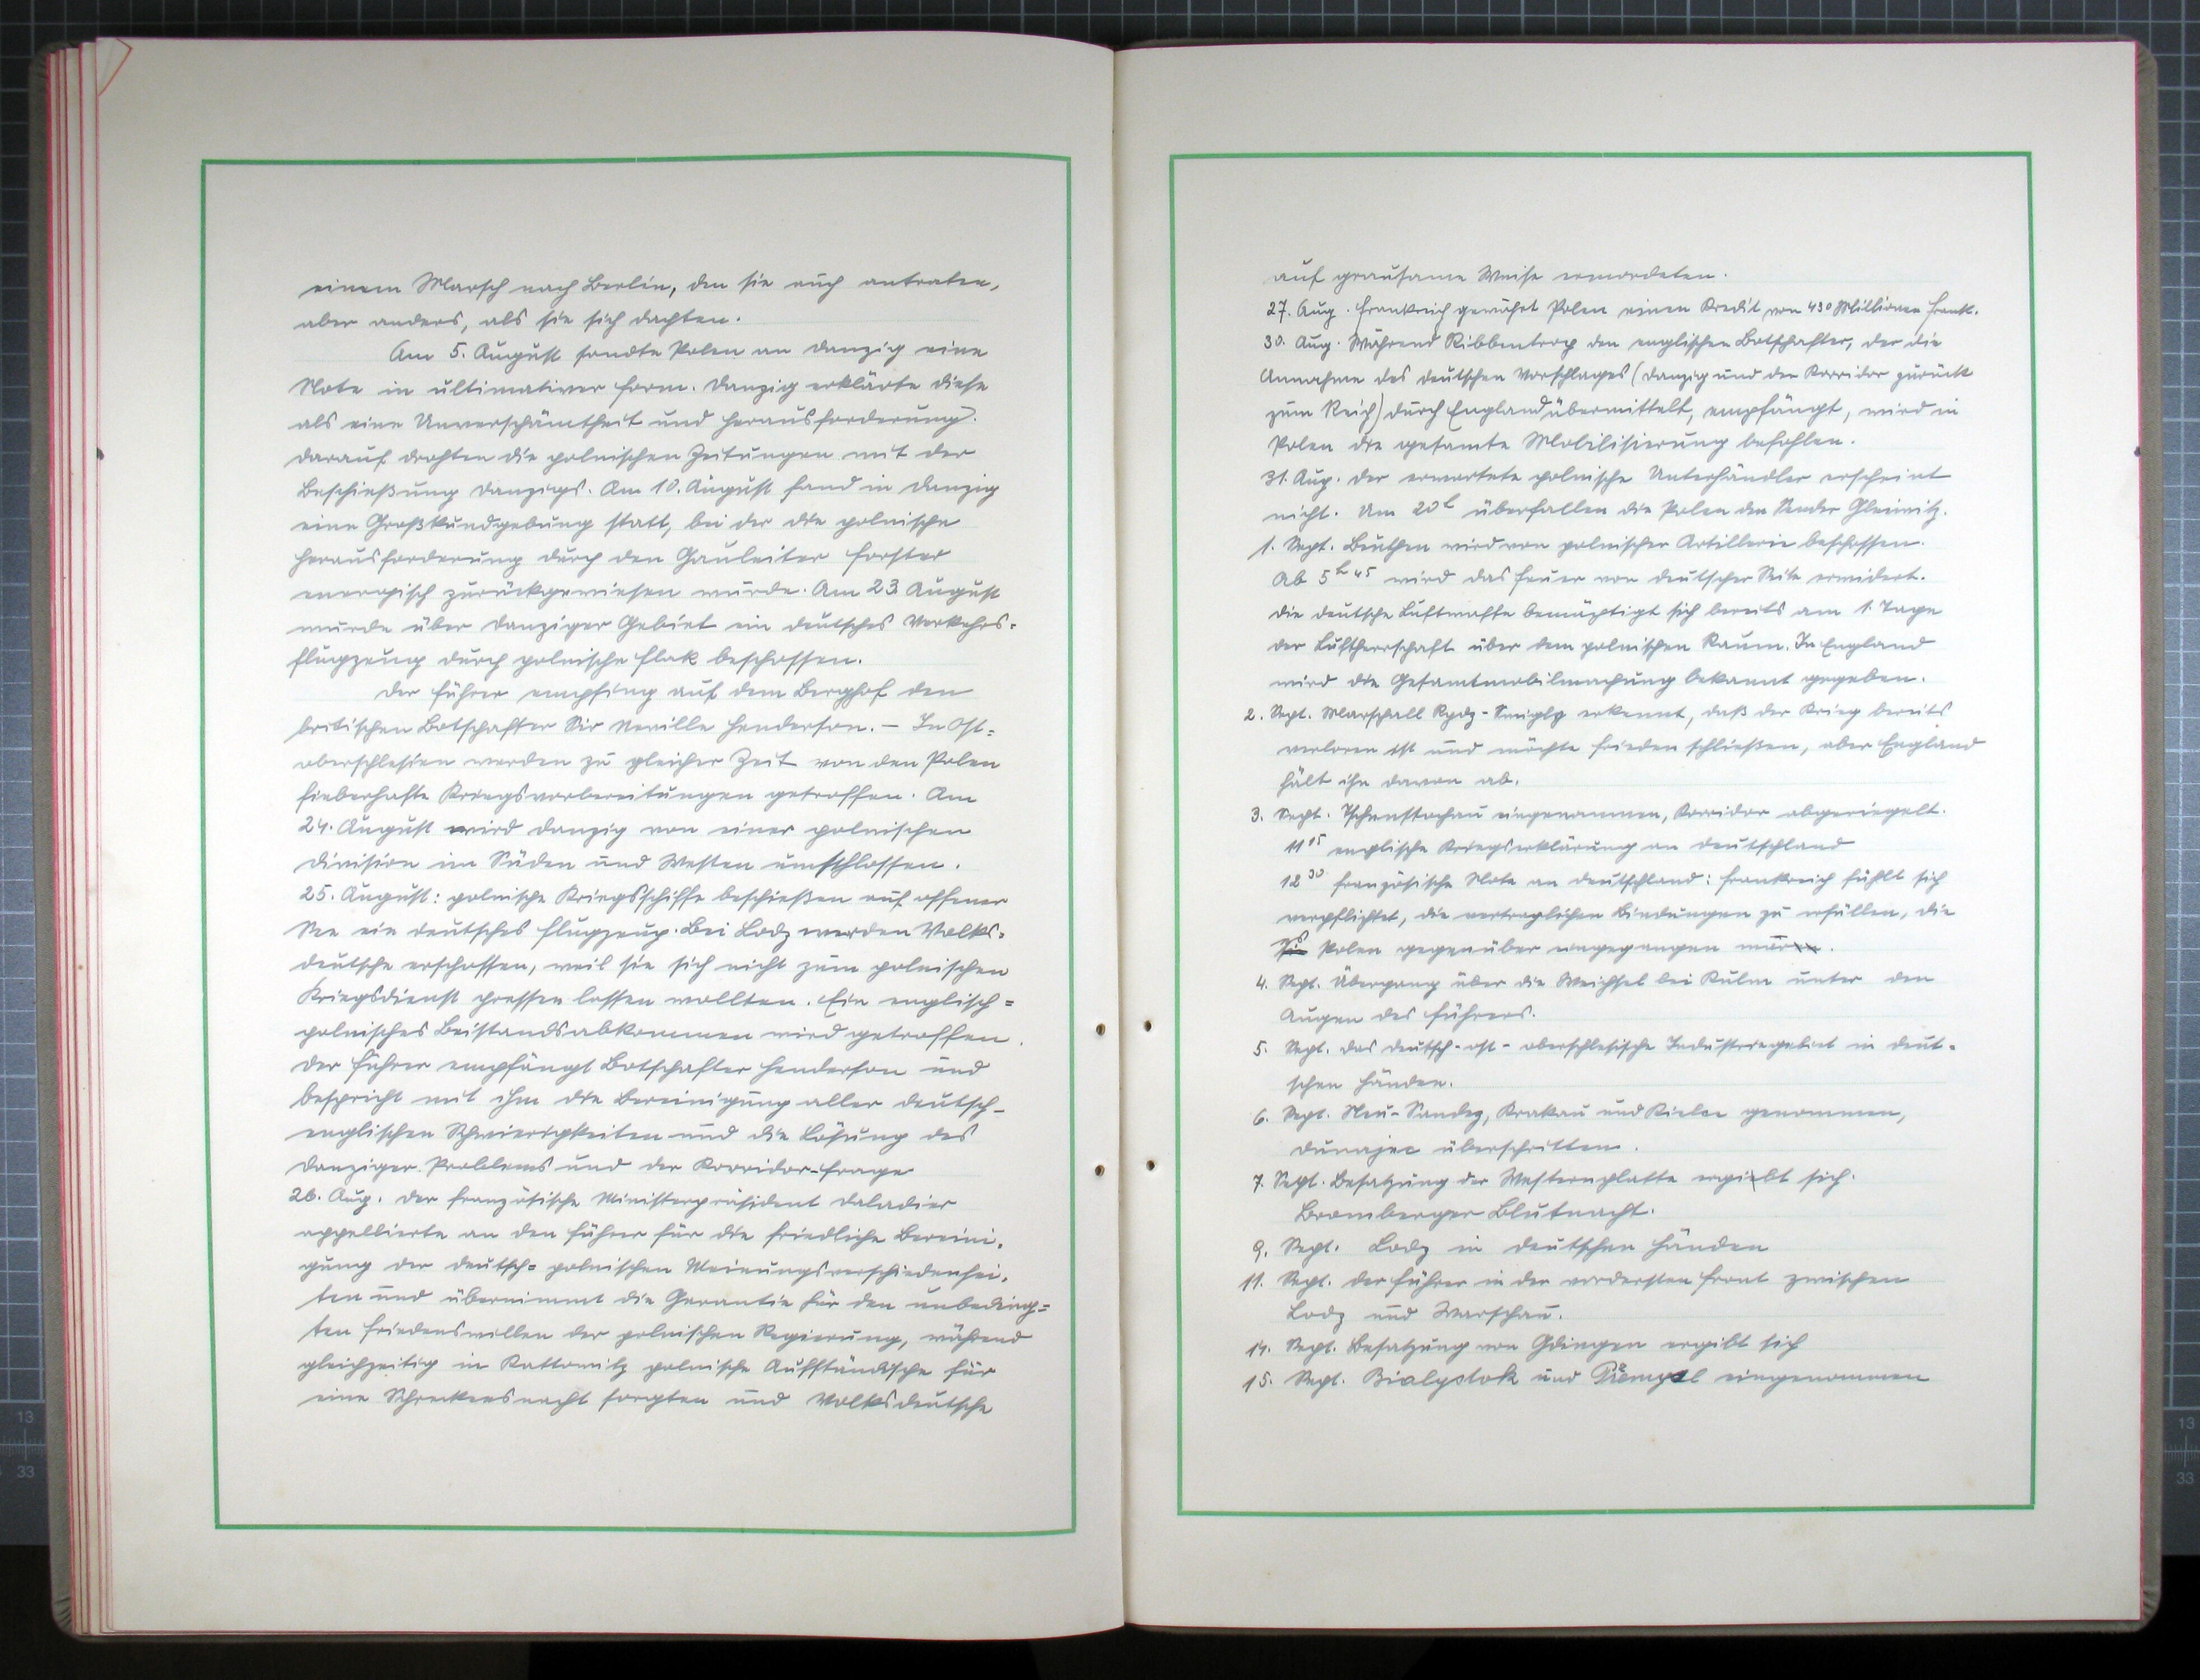 einem Marsch nach Berlin, den sie auch antraten,
aber anders, als sie sich dachten.
Am 5. August sandte Polen an Danzig eine
Note in ultimativer Form. Danzig erklärte diese
als eine Unverschämtheit und Herausforderung.
Darauf drohten die polnischen Zeitungen mit der
Beschießung Danzigs. Am 10. August fand in Danzig
eine Großkundgebung statt, bei der die polnische
Herausforderung durch den Gauleiter Forster
energisch zurückgewiesen wurde. Am 23. August
wurde über Danziger Gebiet ein deutsches Verkehrs-
flugzeug durch polnische Flak beschossen.
Der Führer empfing auf dem Berghof den
britischen Botschafter Sir Neville Henderson. – In Ost-
oberschlesien werden zu gleicher Zeit von den Polen
fieberhafte Kriegsvorbereitungen getroffen. Am
24. August wird Danzig von einer polnischen
Division im Süden und Westen umschlossen.
25. August: polnische Kriegsschiffe beschießen auf offener
See ein deutsches Flugzeug. Bei Lodz werden Volks-
deutsche erschossen, weil sie sich nicht zum polnischen
Kriegsdienst pressen lassen wollten. Ein englisch-
polnisches Beistandsabkommen wird getroffen.
Der Führer empfängt Botschafter Henderson und
bespricht mit ihm die Bereinigung aller deutsch-
englischen Schwierigkeiten und die Lösung des
Danziger Problems und der Korridor-Frage
26. Aug. Der französische Ministerpräsident Daladier
appellierte an den Führer für die friedliche Bereini-
gung der deutsch-polnischen Meinungsverschiedenhei-
ten und übernimmt die Garantie für den unbeding-
ten Friedenswillen der polnischen Regierung, während
gleichzeitig in Kattowitz polnische Aufständische für
eine Schreckensnacht sorgten und Volksdeutsche
auf grausame Weise ermordeten.
27. Aug. Frankreich gewährt Polen einen Kredit von 430 Millionen Frank.
30. Aug. Während Ribbentrop den englischen Botschafter, der die
Annahme des deutschen Vorschlages (Danzig und der Korridor zurück
zum Reich) durch England übermittelt, empfängt, wird in
Polen die gesamte Mobilisierung befohlen.
31. Aug. Der erwartete polnische Unterhändler erscheint
nicht. Um 20h überfallen die Polen den Sender Gleiwitz.
1. Sept. Beuthen wird von polnischer Artillerie beschossen.
Ab 5h45 wird das Feuer von deutscher Seite erwidert.
Die deutsche Luftwaffe bemächtigt sich bereits am 1. Tage
der Luftherrschaft über dem polnischen Raum. In England
wird die Gesamtmobilmachung bekannt gegeben.
2. Sept. Marschall Rydz-Smigly erkennt, daß der Krieg bereits
verloren ist und möchte Frieden schließen, aber England
hält ihn davon ab.
3. Sept. Tschenstochau eingenommen, Korridor abgeriegelt.
11 15 englische Kriegserklärung an Deutschland
12 30 französische Note an Deutschland: Frankreich fühlt sich
verpflichtet, die vertraglichen Bindungen zu erfüllen, die
es Polen gegenüber eingegangen war.
4. Sept. Übergang über die Weichsel bei Kulm unter den
Augen des Führers.
5. Sept. Das deutsch-ost-oberschlesische Industriegebiet in deut-
schen Händen.
6. Sept. Neu-Sandez, Krakau und Kielce genommen,
Dunajec überschritten.
7. Sept. Besatzung der Westernplatte ergibt sich.
Bromberger Blutnacht.
9. Sept. Lodz in deutschen Händen
11. Sept. Der Führer in der vordersten Front zwischen
Lodz und Warschau.
14. Sept. Besatzung von Gdingen ergibt sich
15. Sept. Bialystok und eingenommen